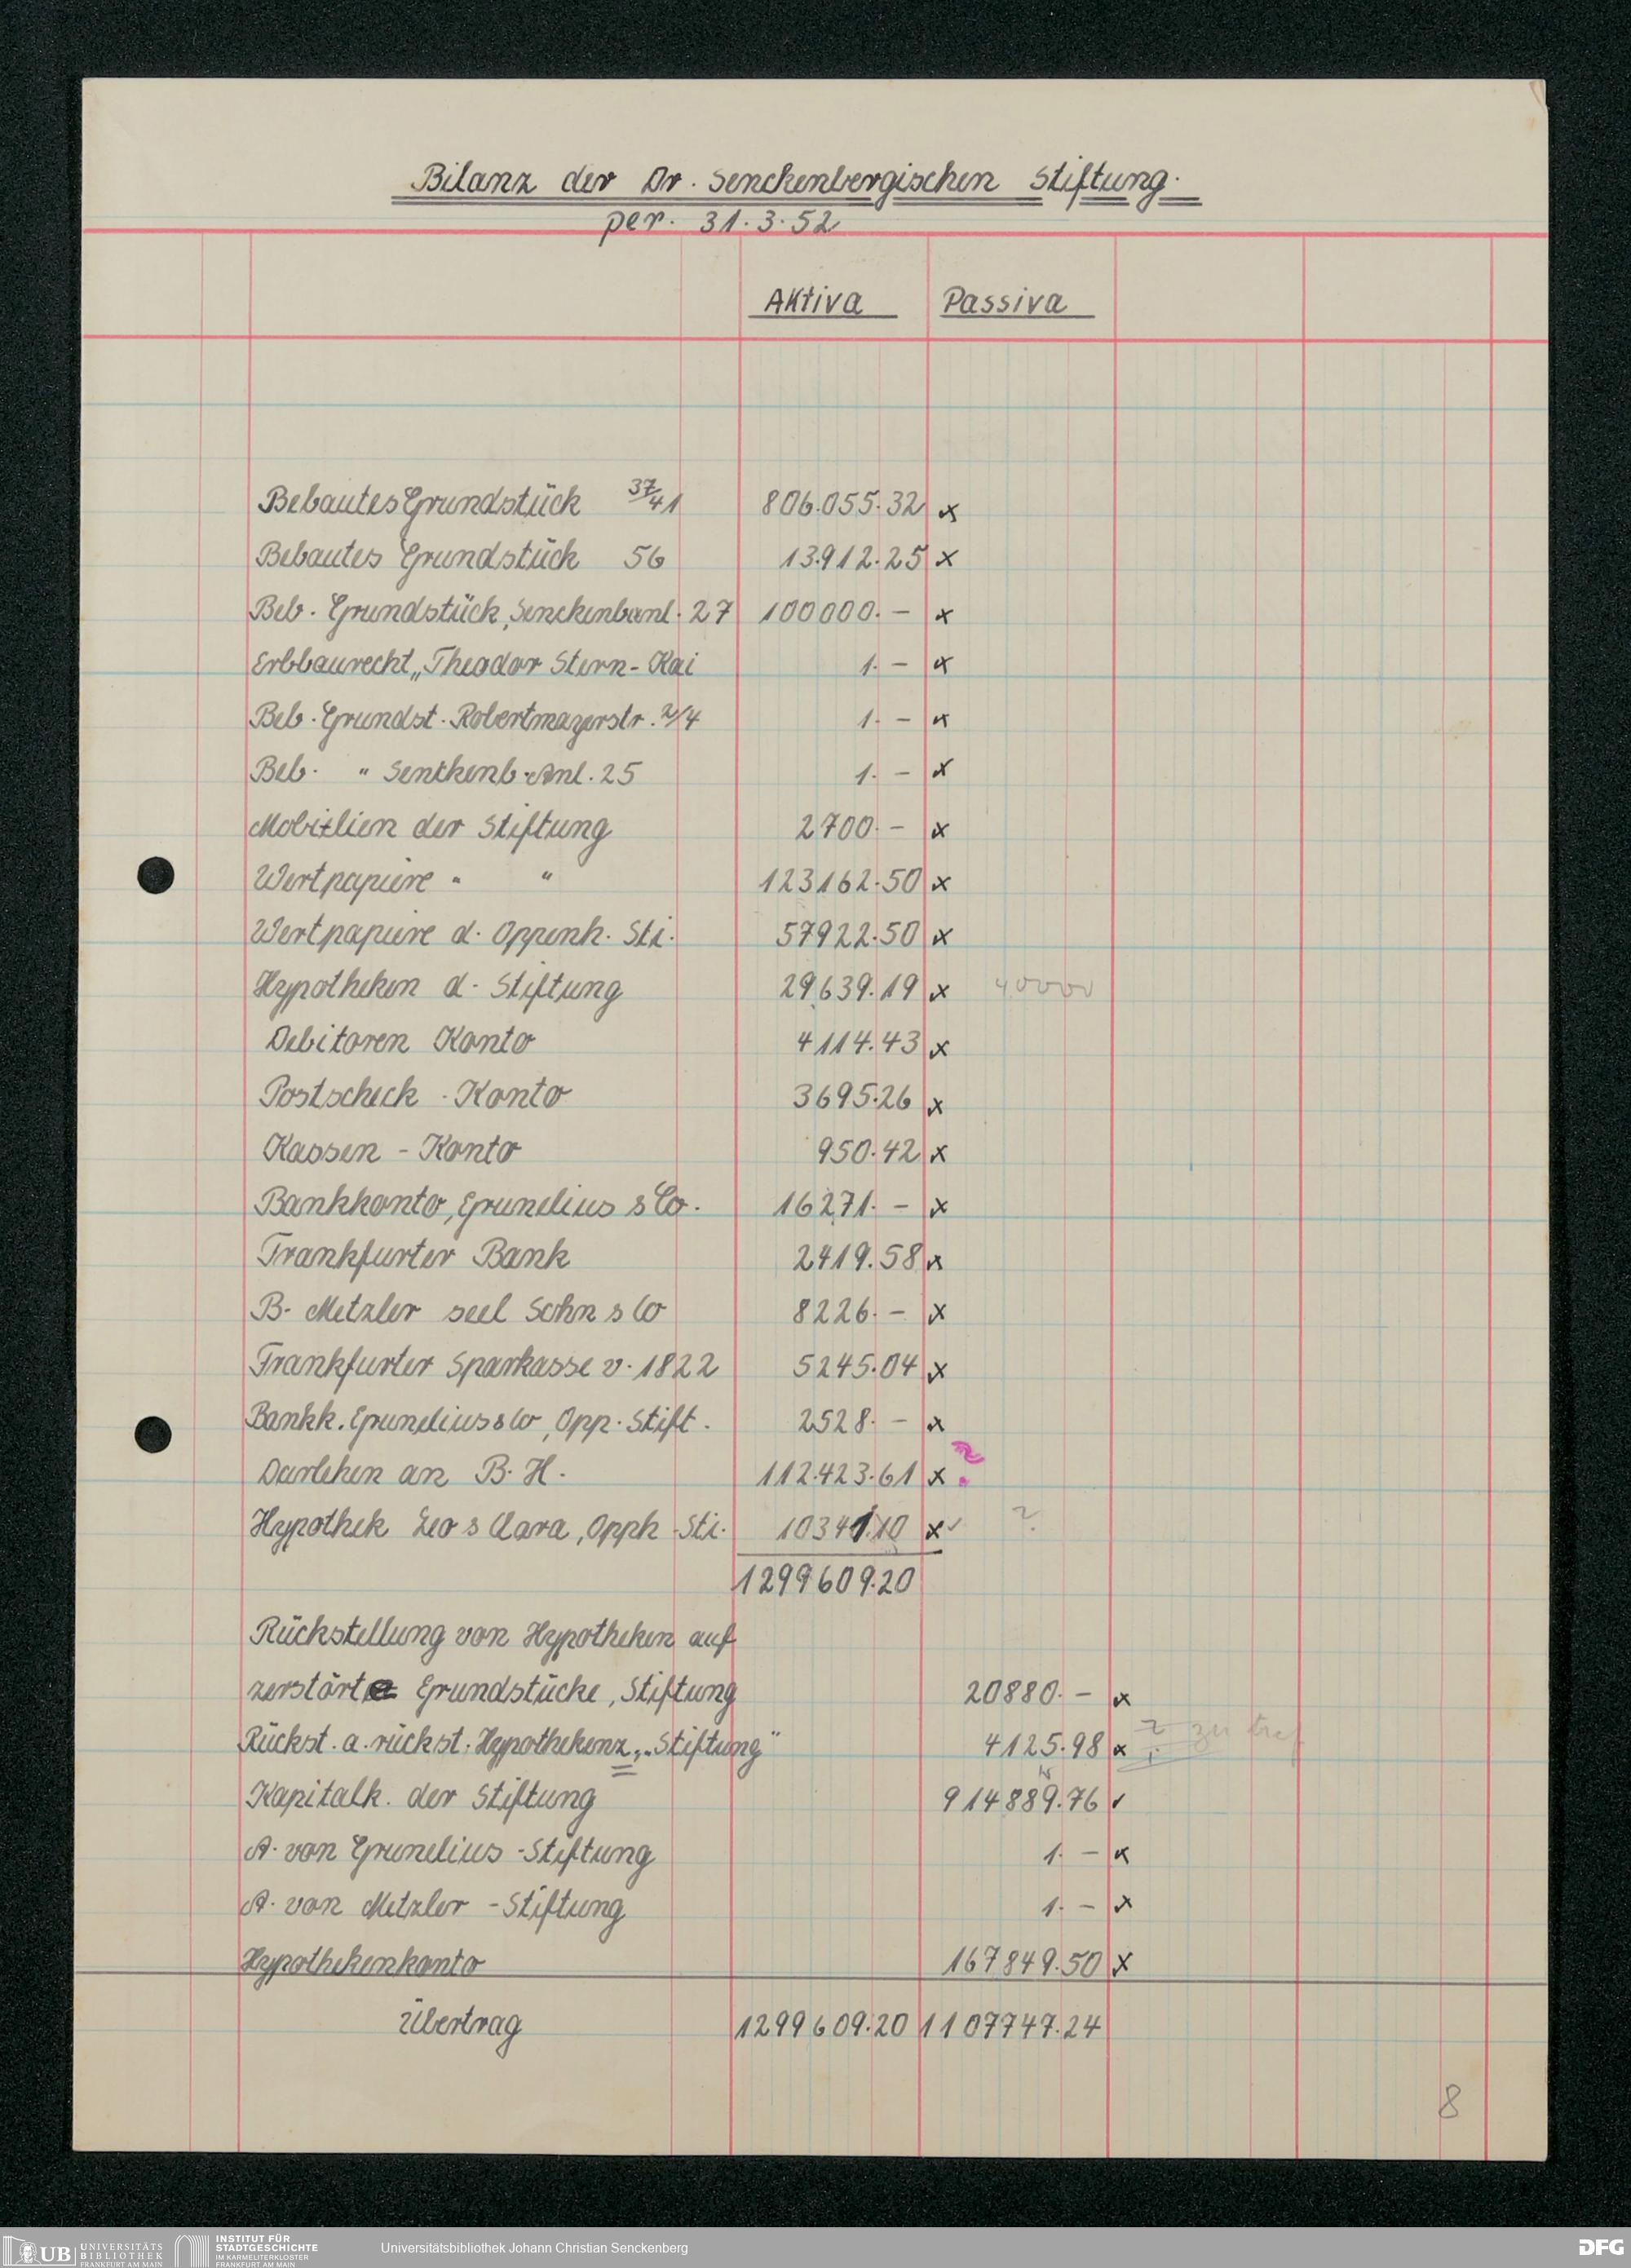 Bilanz der Dr. Senckenbergischen Stiftung.
per. 31.3.52
Aktiva Passiva
Bebautes Grundstück 37/41 806.055.32 x
Bebautes Grundstück 56 13.912.25 x
Beb. Grundstück, Senckenbanl. 27 100000.- x
Erbbaurecht „Theodor Stern-Kai 1.- x
Beb. Grundst. Robertmayerstr. 2/4 1.- x
Beb. " Senckenb. Anl. 25 1.- x
Mobilien der Stiftung 2700.- x
Wertpapiere " " 123162.50 x
Wertpapiere d. Oppenh. Sti. 57922.50 x
Hypotheken d. Stiftung 29.639.19 x 40000
Debitoren Konto 4114.43 x
Postscheck - Konto 3695.26 x
Kassen - Konto 950.42 x
Bankkonto, Grunelius & Co. 16271.- x
Frankfurter Bank 2419.58 x
B. Metzler seel Sohn & Co 8226.- x
Frankfurter Sparkasse v. 1822 5245.04 x
Bankk. Grunelius & Co, Opp. Stift. 2528.- x
Darlehen an B. H. 112.423.61 x ?
Hypothek Leo & Clara, Opph. Sti. 10341.10 x ✓ ?
1299609.20
Rückstellung von Hypotheken auf
zerstörte Grundstücke, Stiftung 20880.- x
Rückst. a. rückst. Hypothekenz. „Stiftung" 4125.98 x ?
Kapitalk. der Stiftung 914889.76 ✓
A. von Grunelius - Stiftung 1.- x
A. von Metzler - Stiftung 1.- x
Hypothekenkonto 167849.50 x
Übertrag 1299609.20 1107747.24
8
UB UNIVERSITÄTS
BIBLIOTHEK
FRANKFURT AM MAIN
INSTITUT FÜR
STADTGESCHICHTE
IM KARMELITERKLOSTER
FRANKFURT AM MAIN
Universitätsbibliothek Johann Christian Senckenberg
DFG